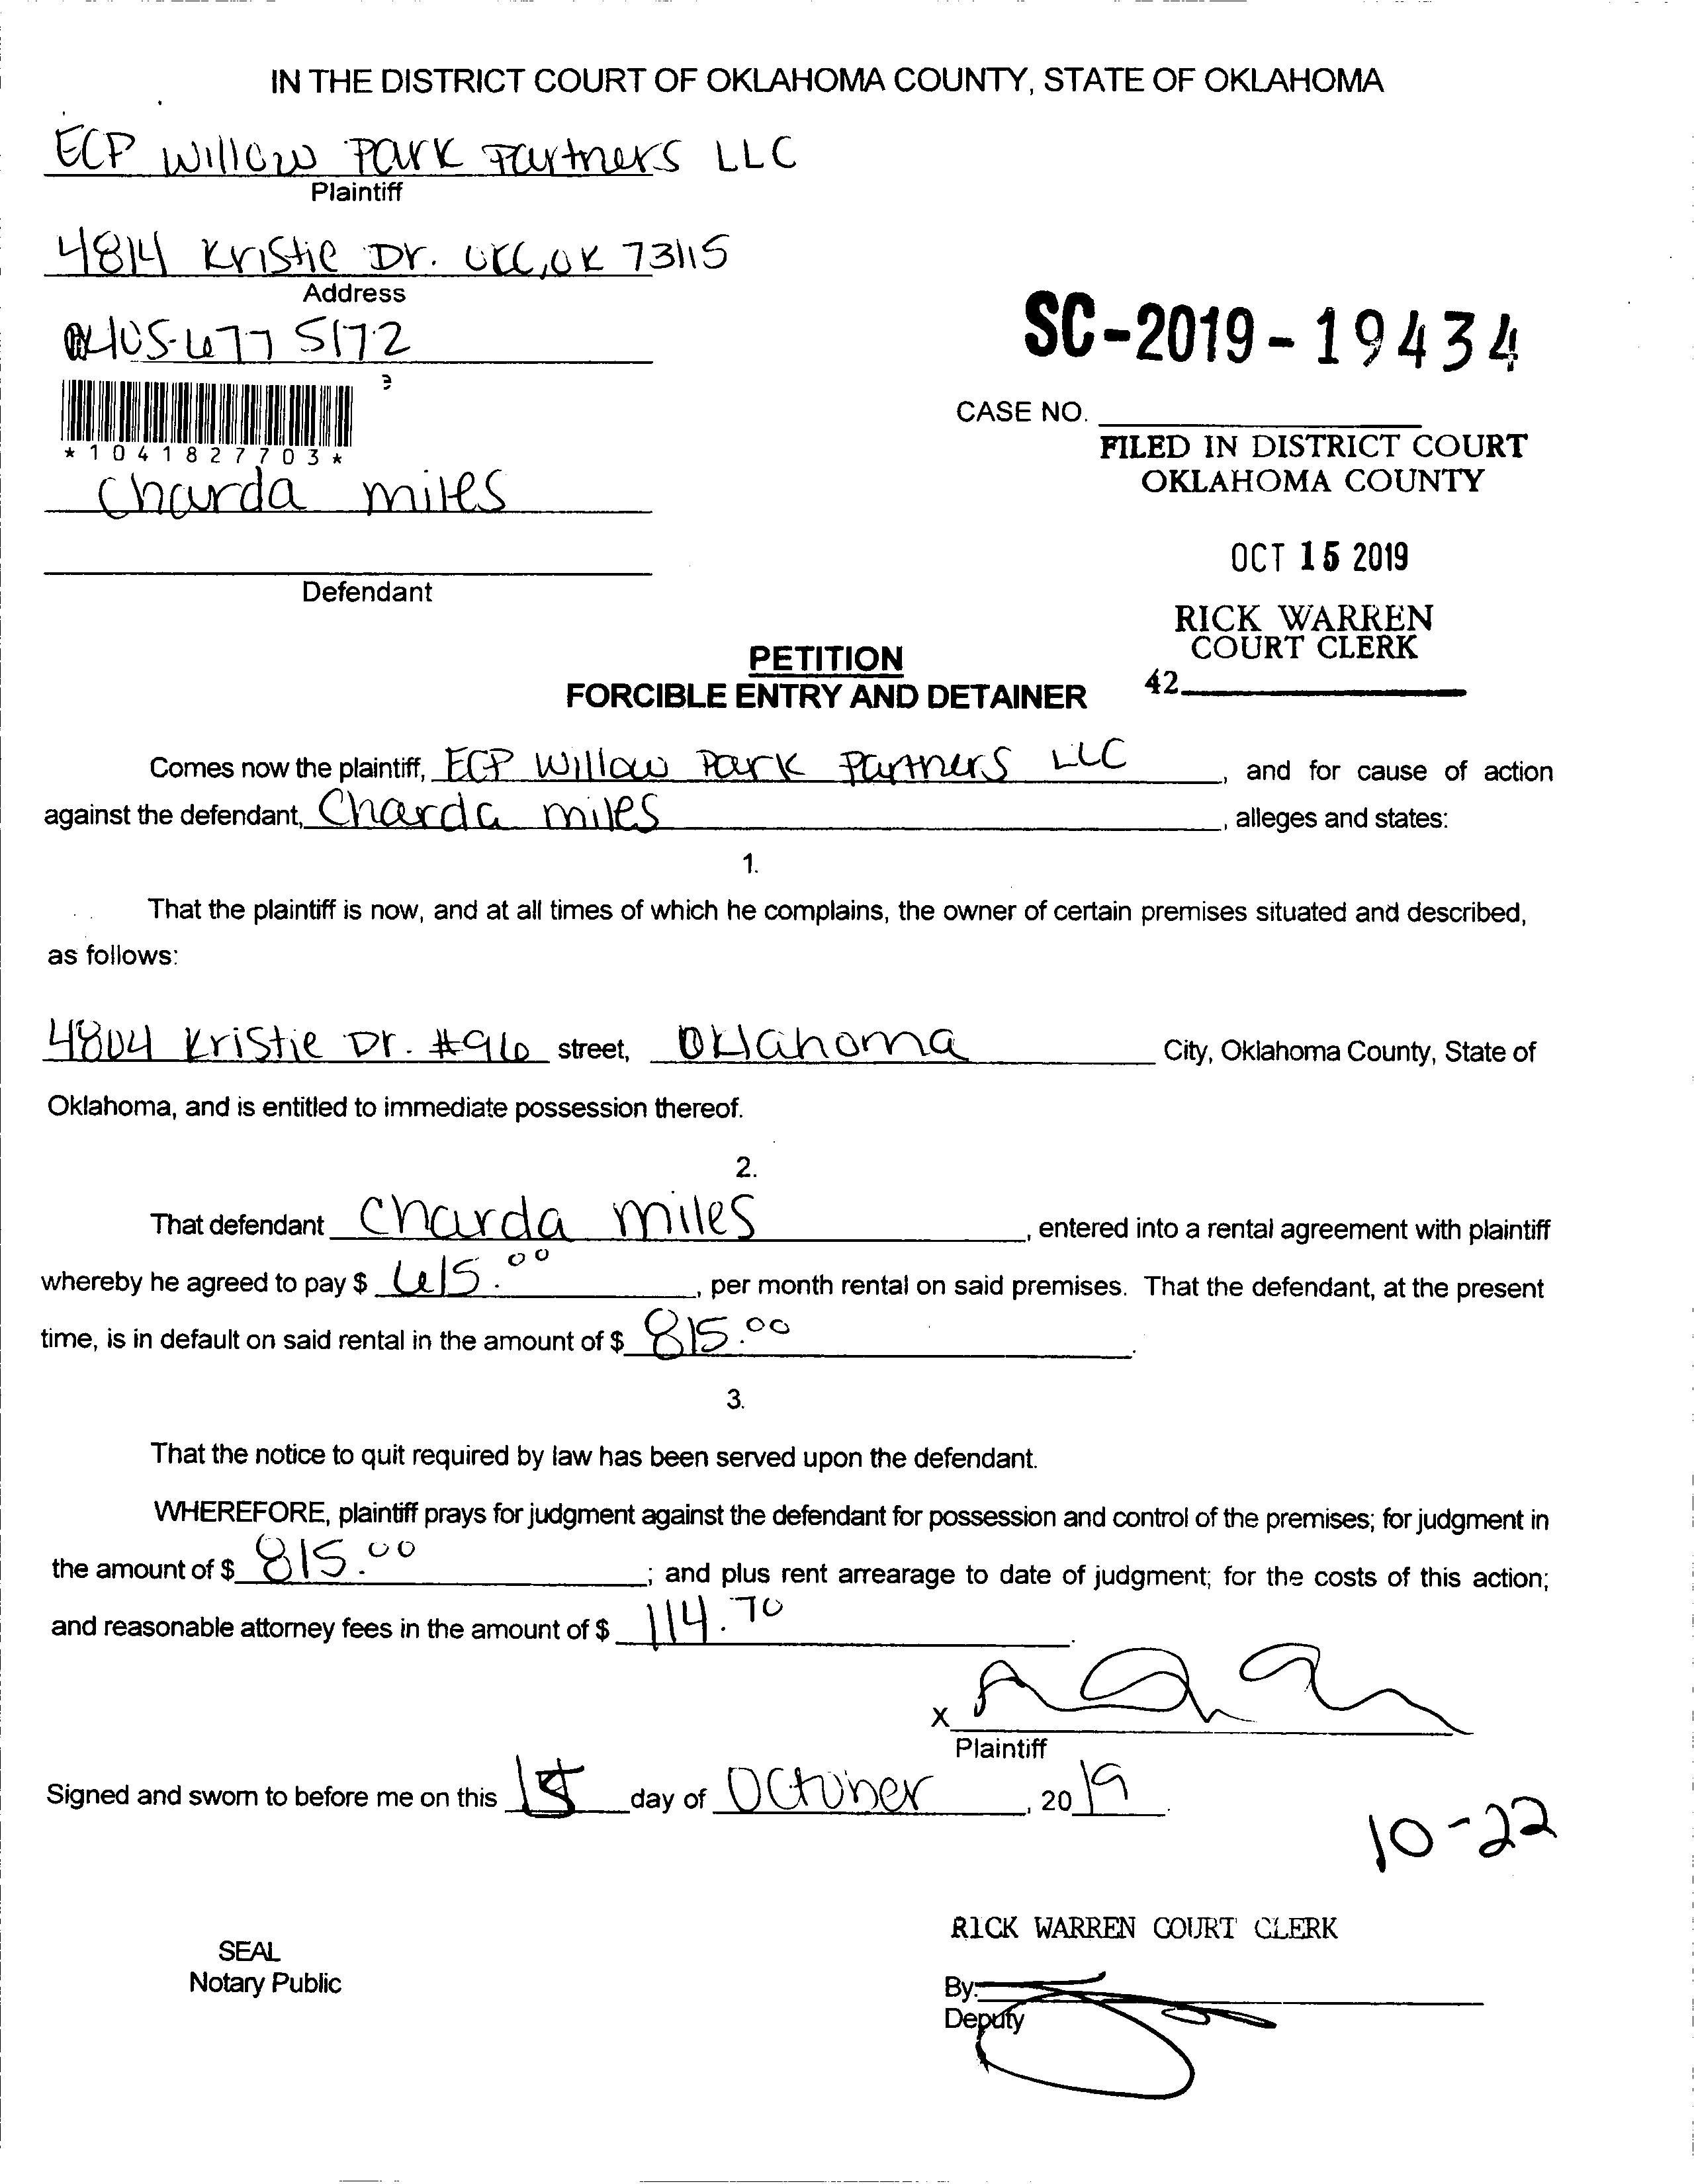 IN THE DISTRICT COURT OF OKLAHOMA COUNTY, STATE OF OKLAHOMA
ECP Willow Park Partners LLC
Plaintiff
4814 Kristie Dr. OKC, OK 73115
Address
405-677 5172
*1041827703*
Charda miles
Defendant
SC-2019-19434
CASE NO.
FILED IN DISTRICT COURT
OKLAHOMA COUNTY
OCT 15 2019
RICK WARREN
COURT CLERK
42
PETITION
FORCIBLE ENTRY AND DETAINER
Comes now the plaintiff, ECP Willow Park Partners LLC, and for cause of action
against the defendant, Charda miles, alleges and states:
1.
That the plaintiff is now, and at all times of which he complains, the owner of certain premises situated and described,
as follows:
4804 Kristie Dr. #96 street, Oklahoma City, Oklahoma County, State of
Oklahoma, and is entitled to immediate possession thereof.
2.
That defendant Charda miles, entered into a rental agreement with plaintiff
whereby he agreed to pay $ 615.00, per month rental on said premises. That the defendant, at the present
time, is in default on said rental in the amount of $ 815.00.
3.
That the notice to quit required by law has been served upon the defendant.
WHEREFORE, plaintiff prays for judgment against the defendant for possession and control of the premises; for judgment in
the amount of $ 815.00; and plus rent arrearage to date of judgment; for the costs of this action;
and reasonable attorney fees in the amount of $ 114.70.
X
Plaintiff
Signed and sworn to before me on this 15 day of October, 2019.
10-22
RICK WARREN COURT CLERK
SEAL
Notary Public
By:
Deputy